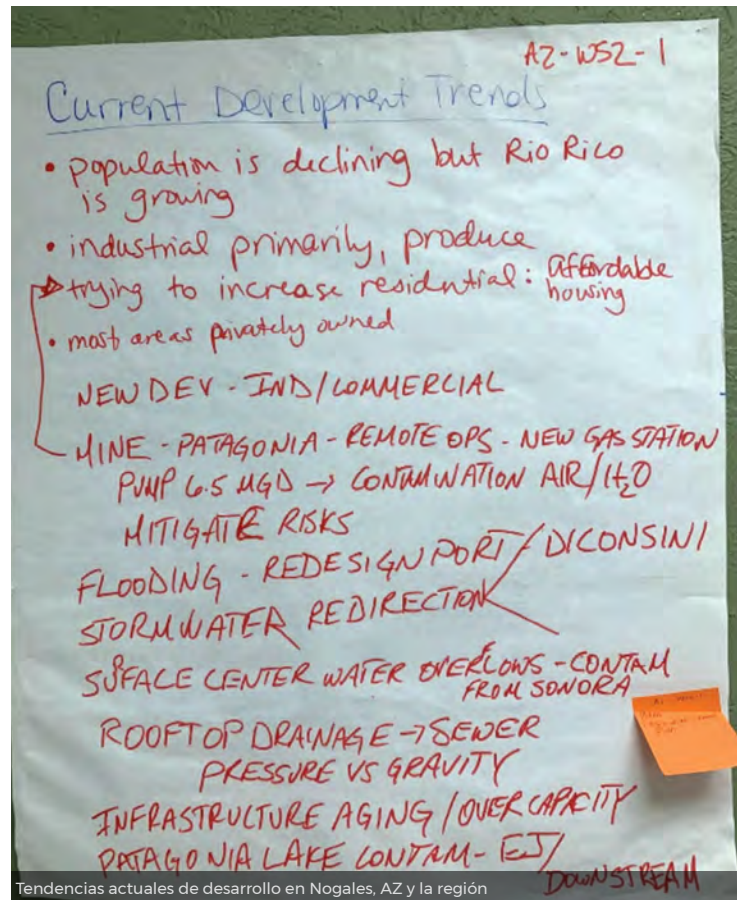 AZ-WS2-1
Current Development Trends
• population is declining but Rio Rico
is growing
• industrial primarily, produce
trying to increase residential: affordable
housing
• most areas privately owned
NEW DEV - IND/COMMERCIAL
MINE - PATAGONIA - REMOTE OPS - NEW GAS STATION
PUMP 6.5 MGD → CONTAMINATION AIR/H2O
MITIGATE RISKS
FLOODING - REDESIGN PORT / DICONSINI
STORMWATER REDIRECTION
SUFACE CENTER WATER OVERFLOWS - CONTAM
FROM SONORA
ROOFTOP DRAINAGE → SEWER
PRESSURE VS GRAVITY
INFRASTRUCTURE AGING / OVER CAPACITY
PATAGONIA LAKE CONTAM - EJ/
DOWNSTREAM
Tendencias actuales de desarrollo en Nogales, AZ y la región